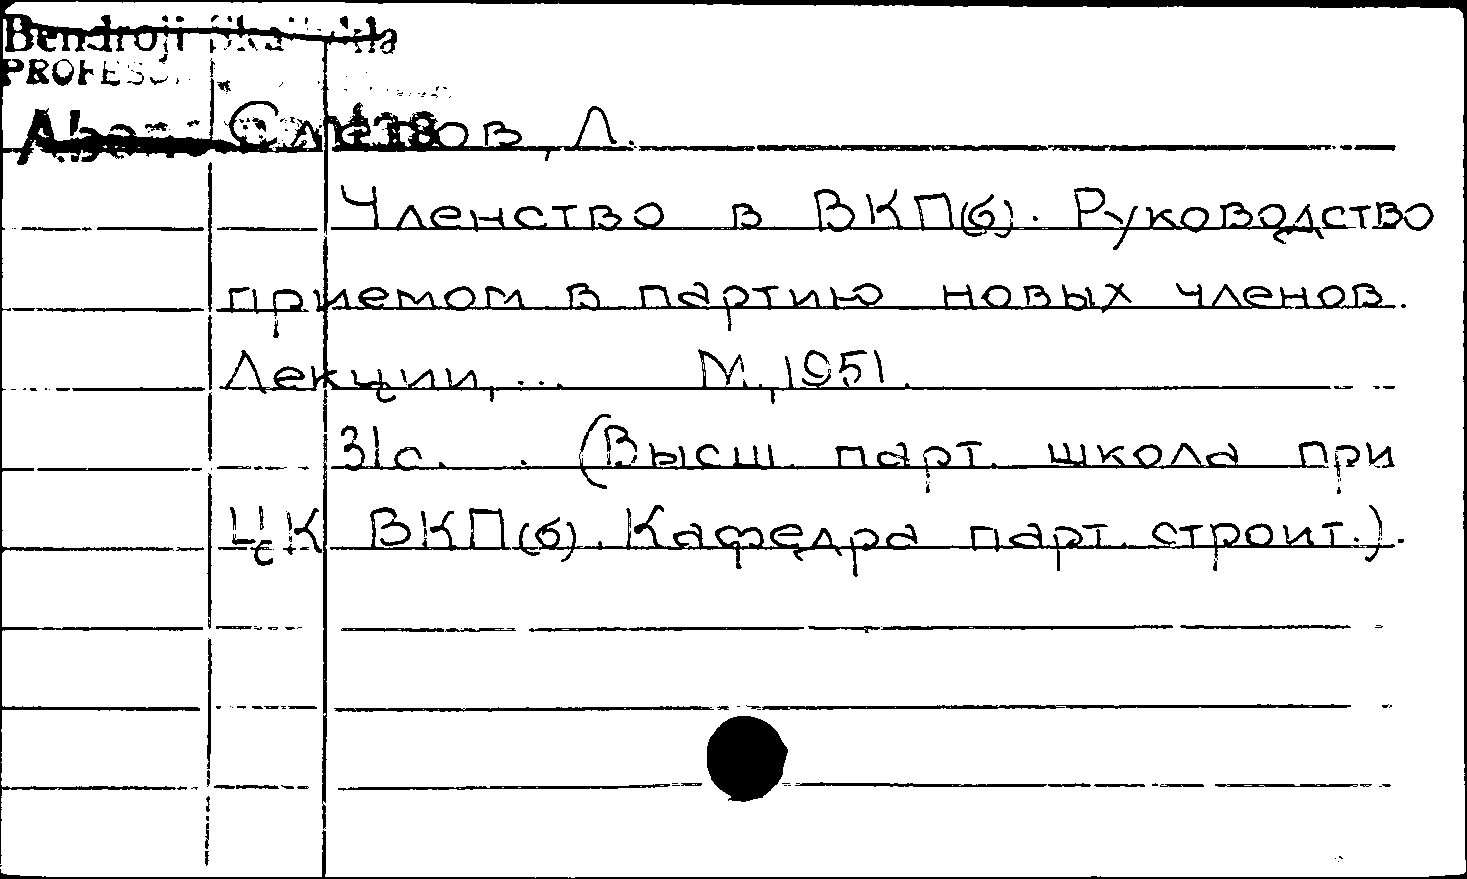 Bendroji skaitykla
PROFESO
Слепов, Л.
Членство в ВКП(б). Руководство
приемом в партию новых членов.
Лекции, ... М., 1951.
31с. . (Высш. парт. школа при
ЦК ВКП(б). Кафедра парт. строит.).